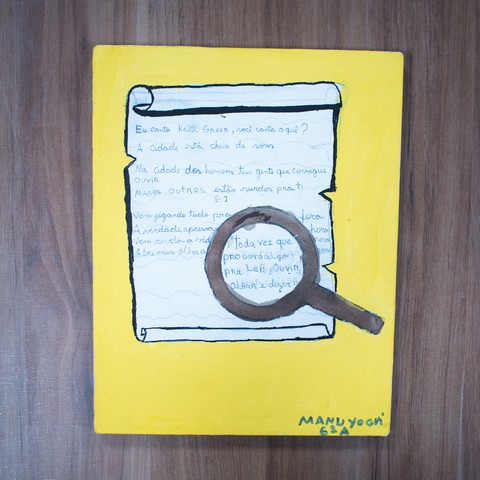 Eu canto Keith Green, você canta o quê?
A cidade está cheia de sons
Na cidade dos homens tem gente que consegue
OUVIR
MUITOS OUTROS estão surdos pra ti
[...]
Vem jogando tudo pra fora
A verdade apressa hora
Vem revela a
Abre meus olhos
Toda vez que
procuro algo
pra LER, OUVIR,
MANU YOGI
63A